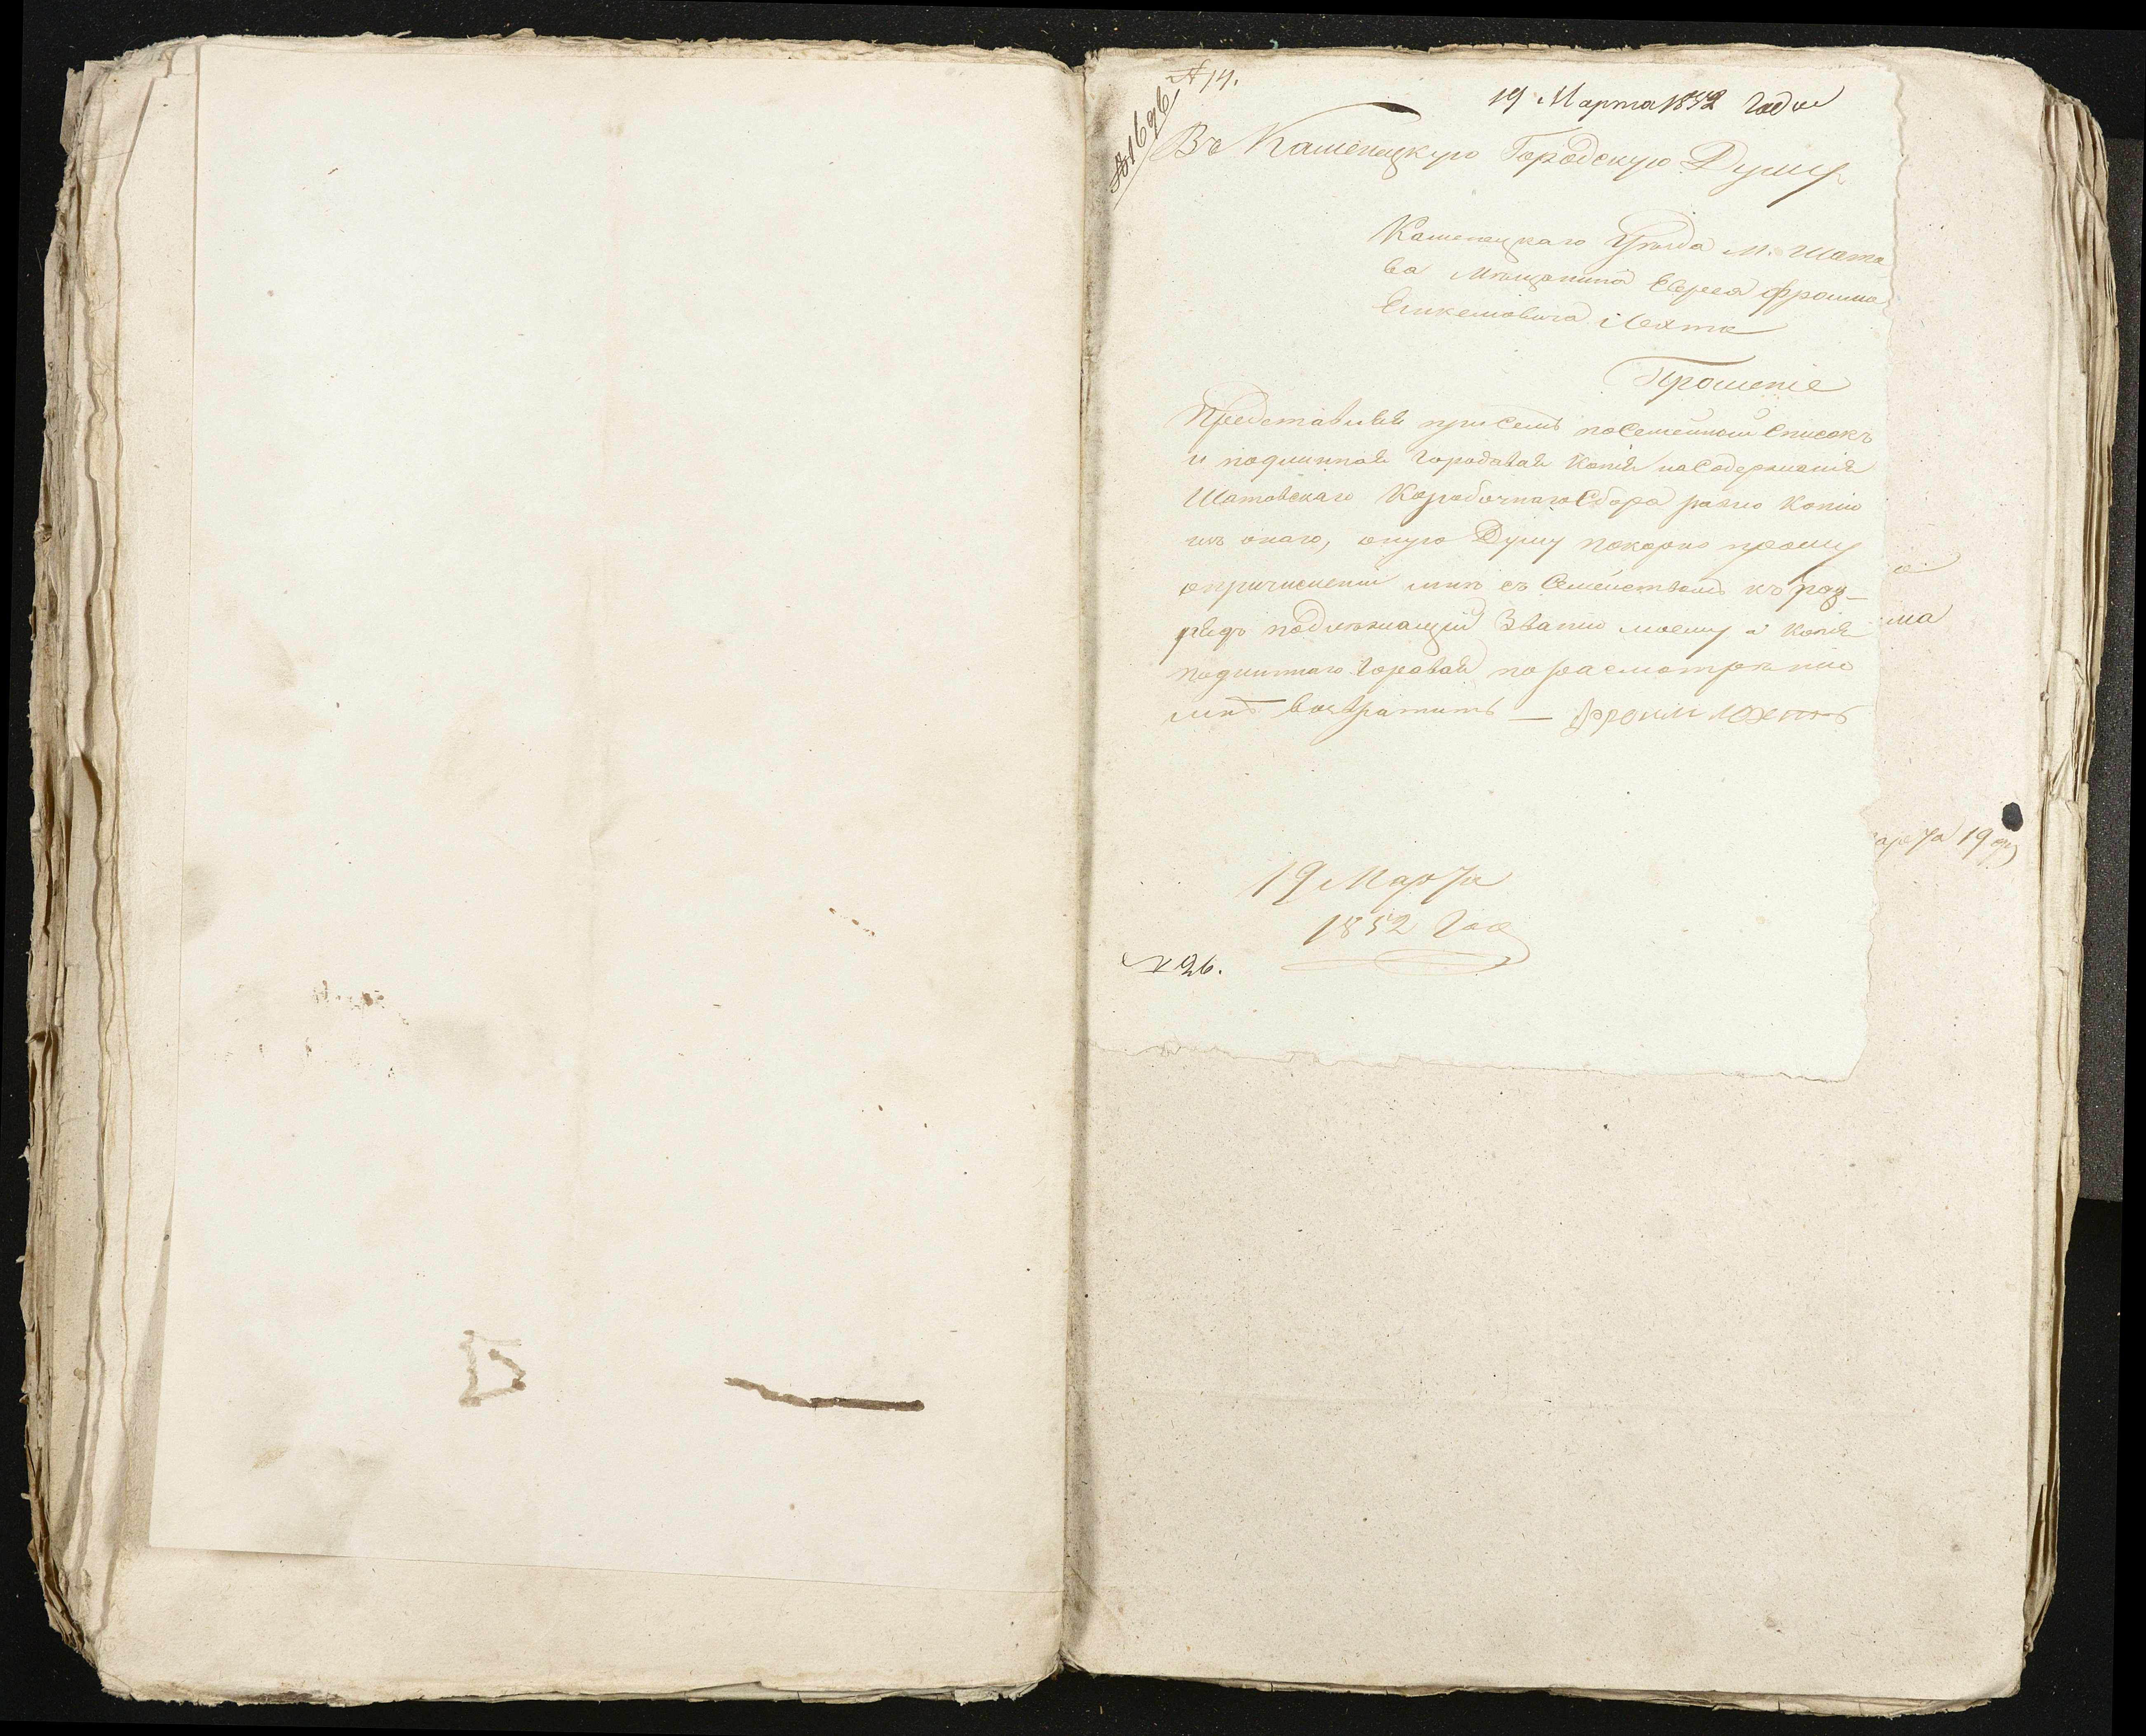 № 14.
№ 1696
19 Марта 1852 года
Въ Каменецкую Городскую Думу
Каменецкаго Уѣзда М. Шата
ва Мѣщанина Еврея Фроима
Прошеніе
Представляя при семъ посемейный Списокъ
и подлинная Копія на Содержанія
Шатовскаго Коробочнаго Сбора равно Копію
изъ онаго, оную Думу покорно прошу
о причисленіи мнѣ съ Семействомъ къ раз-
рядъ подлежащій Званію моему а Копія
подлиннаго по расмотрѣнію
мнѣ возвратить — Фроим
19 Марта
1852 Года
№ 26.
ма
арта 19